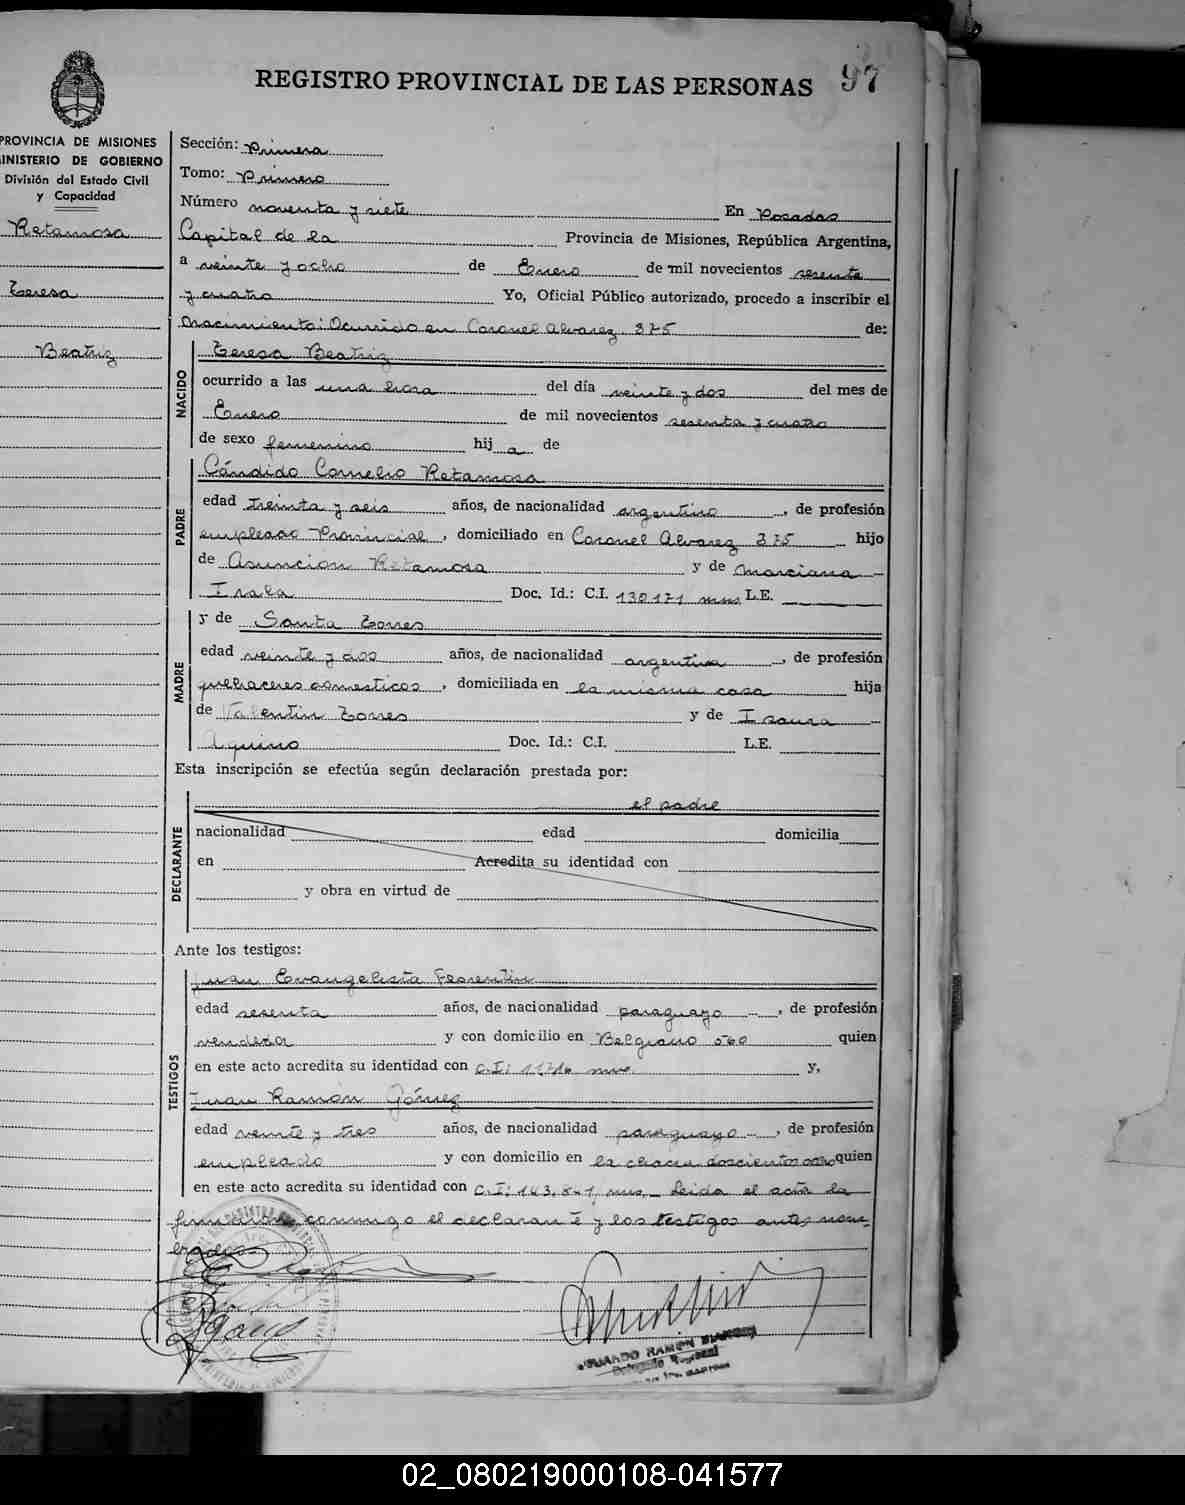 REGISTRO PROVINCIAL DE LAS PERSONAS 97
PROVINCIA DE MISIONES
MINISTERIO DE GOBIERNO
División del Estado Civil
y Capacidad
Retamosa
Teresa
Beatriz
Sección: Primera
Tomo: Primero
Número noventa y siete En Posadas
Capital de la Provincia de Misiones, República Argentina,
a veinte y ocho de Enero de mil novecientos sesenta
y cuatro Yo, Oficial Público autorizado, procedo a inscribir el
Nacimiento: Ocurrido en Coronel Alvarez 375 de:
NACIDO
Teresa Beatriz
ocurrido a las una hora del día veinte y dos del mes de
Enero de mil novecientos sesenta y cuatro
de sexo femenino hij a de
PADRE
Cándido Cornelio Retamosa
edad treinta y seis años, de nacionalidad argentino, de profesión
empleado Provincial, domiciliado en Coronel Alvarez 375 hijo
de Asunción Retamosa y de Marciana
Irala Doc. Id.: C.I. 130171 mns L.E.
MADRE
y de Santa Torres
edad veinte y dos años, de nacionalidad argentina, de profesión
quehaceres domesticos, domiciliada en la misma casa hija
de Valentin Torres y de Isaura
Aquino Doc. Id.: C.I. L.E.
Esta inscripción se efectúa según declaración prestada por:
DECLARANTE
el padre
nacionalidad edad domicilia
en Acredita su identidad con
y obra en virtud de
Ante los testigos:
TESTIGOS
Juan Evangelista Florentin
edad sesenta años, de nacionalidad paraguayo, de profesión
vendedor y con domicilio en Belgrano 560 quien
en este acto acredita su identidad con C.I: mns. y,
Juan Ramón Gómez
edad veinte y tres años, de nacionalidad paraguayo, de profesión
empleado y con domicilio en la chacra doscientos ocho quien
en este acto acredita su identidad con C.I: mns. Leida el acta la
firmaron conmigo el declarante y los testigos antes nom-
brados
EDUARDO RAMÓN
Delegado Regional
02_080219000108-041577